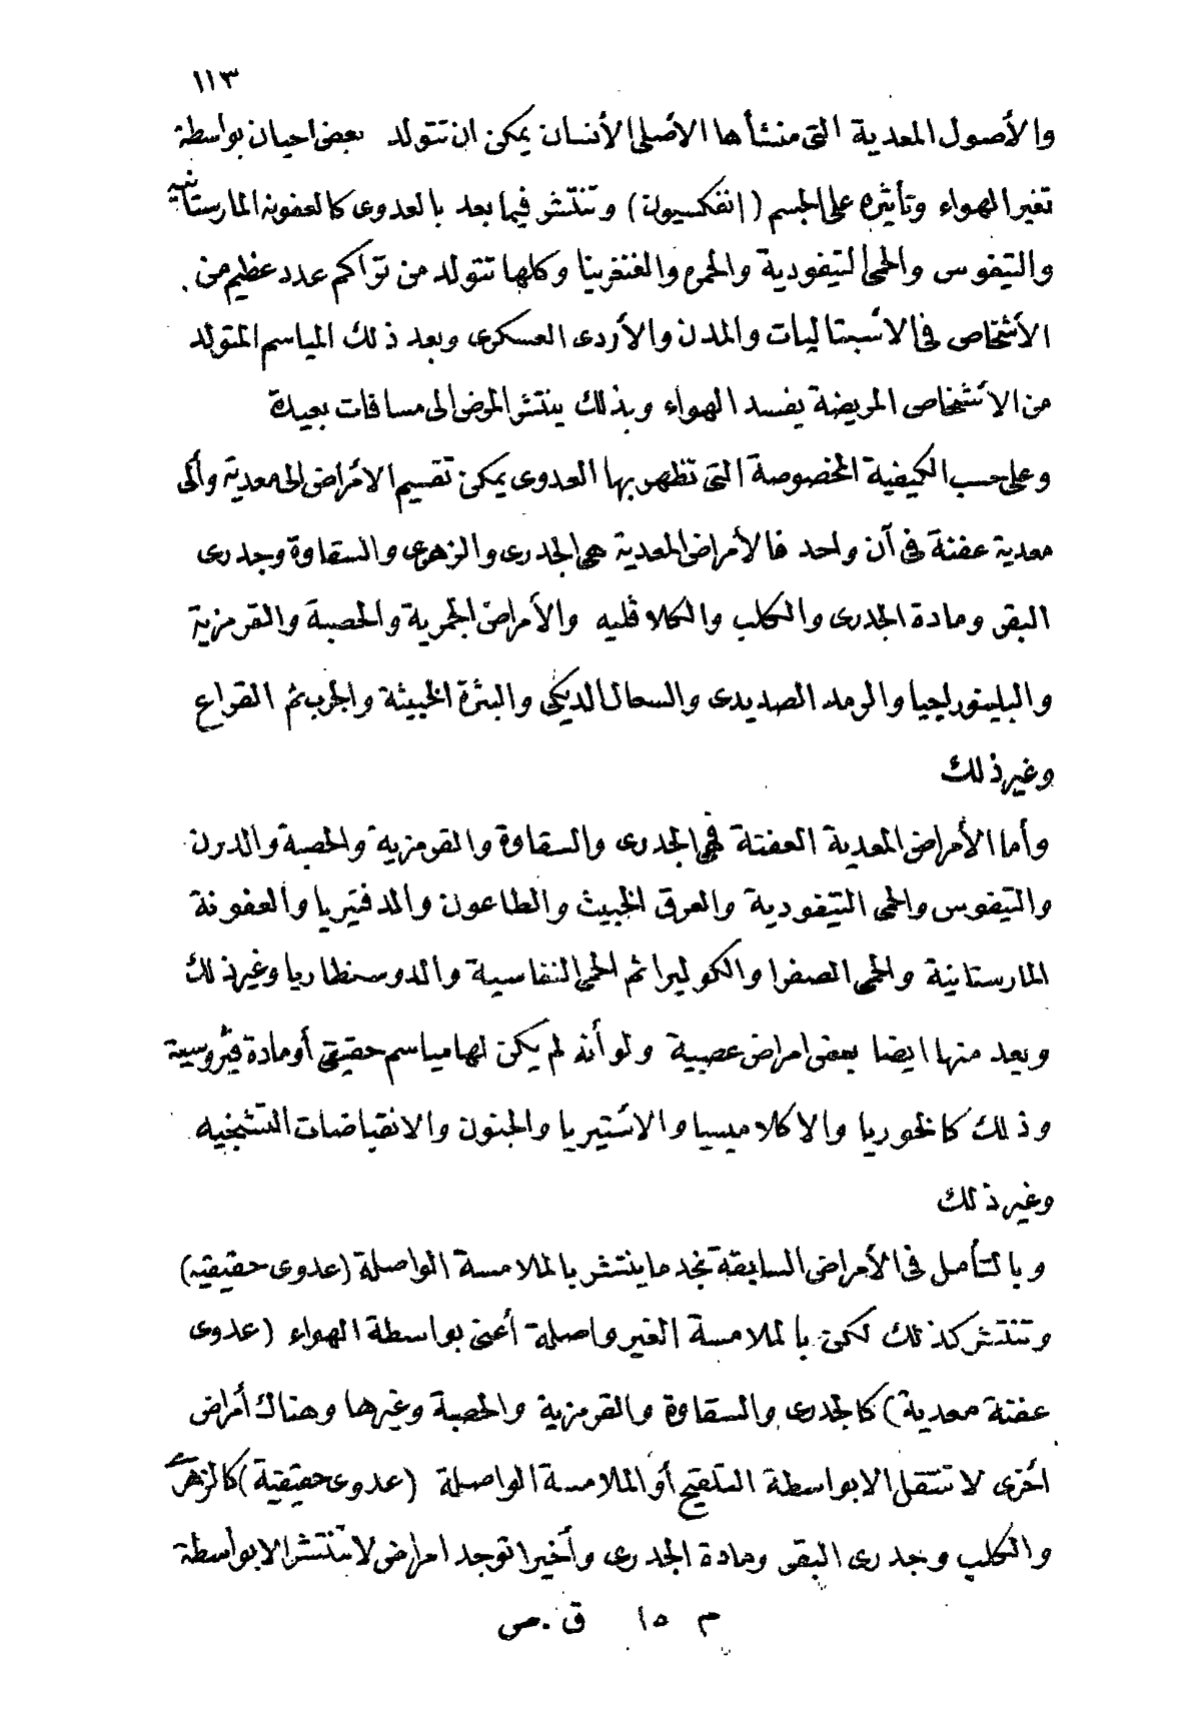 ١١٣
والأصول المعدية التى منشأها الأصلى الأنسان يمكن ان تتولد بعض احيان بواسطة
تغير الهواء وتأثيره على الجسم (انفكسيون) وتنتشر فيما بعد بالعدوى كالعفونه المارستانيه
والتيفوس والحمى التيفودية والحمره والغنغرينا وكلها تتولد من تراكم عدد عظيم من
الأشخاص فى الاسبتاليات والمدن والأردى العسكرى وبعد ذلك المياسم المتولد
من الأشخاص المريضة يفسد الهواء وبذلك ينتشر المرض الى مسافات بعيدة
وعلى حسب الكيفية المخصوصة التى تظهر بها العدوى يمكن تقسيم الأمراض الى معدية وألى
معدية عفنة فى آن واحد فالأمراض المعدية هى الجدرى والزهرى والسقاوة وجدرى
البقر ومادة الجدرى والكلب والكلا قليه والأمراض الجمرية والحصبة والقرمزية
والبلينورجيا والرمد الصديدى والسعال الديكى والبثرة الخبيثة والجرب ثم القراع
وغير ذلك
وأما الأمراض المعدية العفنة فهى الجدرى والسقاوة والقرمزية والحصبة والدرن
والتيفوس والحمى التيفودية والعرق الخبيث والطاعون والدفتيريا والعفونة
المارستانية والحمى الصفرا والكوليرا ثم الحمى النفاسية والدوسنطاريا وغير ذلك
ويعد منها ايضا بعض امراض عصبية ولو أنه لم يكن لها مياسم حقيقى أو مادة فيروسية
وذلك كالخوريا والاكلامبسيا والاستيريا والجنون والانقباضات التشنجيه
وغير ذلك
وبالتأمل فى الأمراض السابقة نجد ما ينتشر بالملامسة الواصلة (عدوى حقيقيه)
وتنتشر كذلك لكن بالملامسة الغير واصلة أعنى بواسطة الهواء (عدوى
عفنة معدية) كالجدرى والسقاوة والقرمزية والحصبة وغيرها وهناك أمراض
أخرى لا تنتقل الا بواسطة التلقيح أو الملامسة الواصلة (عدوى حقيقية) كالزهرى
والكلب وجدرى البقر ومادة الجدرى وأخيرا توجد امراض لا تنتشر الا بواسطة
م ١٥ ق . ص